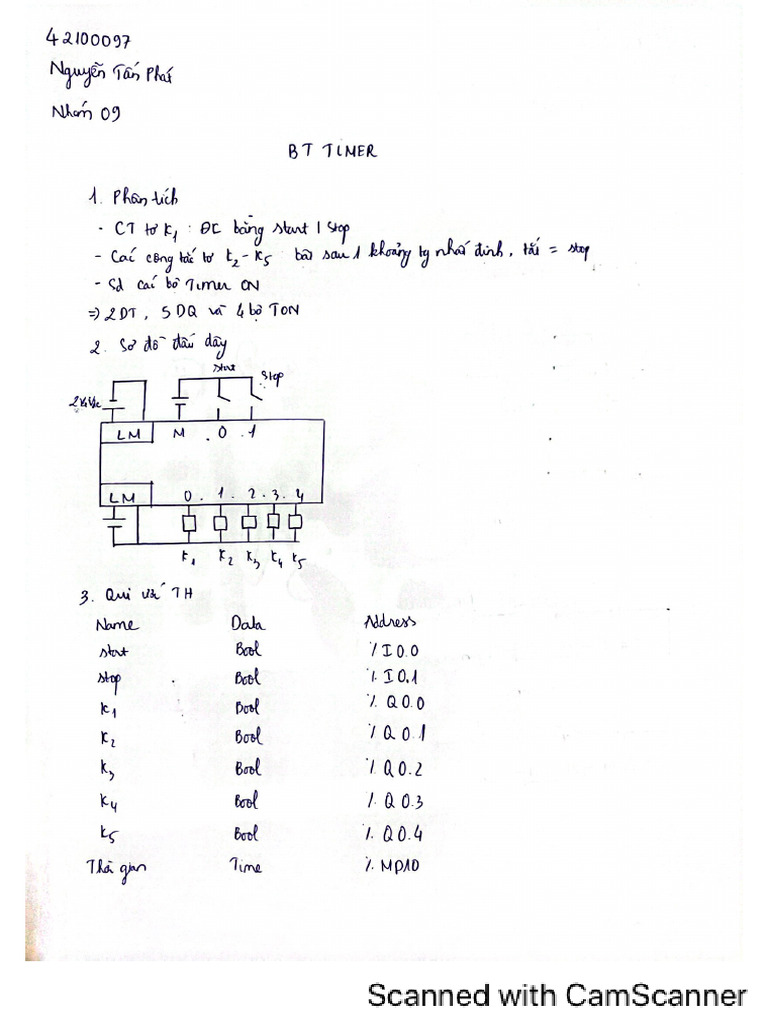 42100097
Nguyễn Tấn Phát
Nhóm 09
BT TIMER
1. Phân tích
- CT tơ K1 : ĐC bằng start | stop
- Các công tắc tơ K2 - K5 bật sau 1 khoảng tg nhất định, tắt = stop
- Sd các bộ Timer ON
=> 2 DT, 5 DQ và 4 bộ TON
2. Sơ đồ đấu dây
start
stop
24Vdc
LM M .0 .1
LM 0. 1. 2. 3. 4
K1 K2 K3 K4 K5
3. Qui ước TH
Name Data Address
start Bool % I0.0
stop Bool % I0.1
K1 Bool % Q0.0
K2 Bool % Q0.1
K3 Bool % Q0.2
K4 Bool % Q0.3
K5 Bool % Q0.4
Thời gian Time % MD10
Scanned with CamScanner